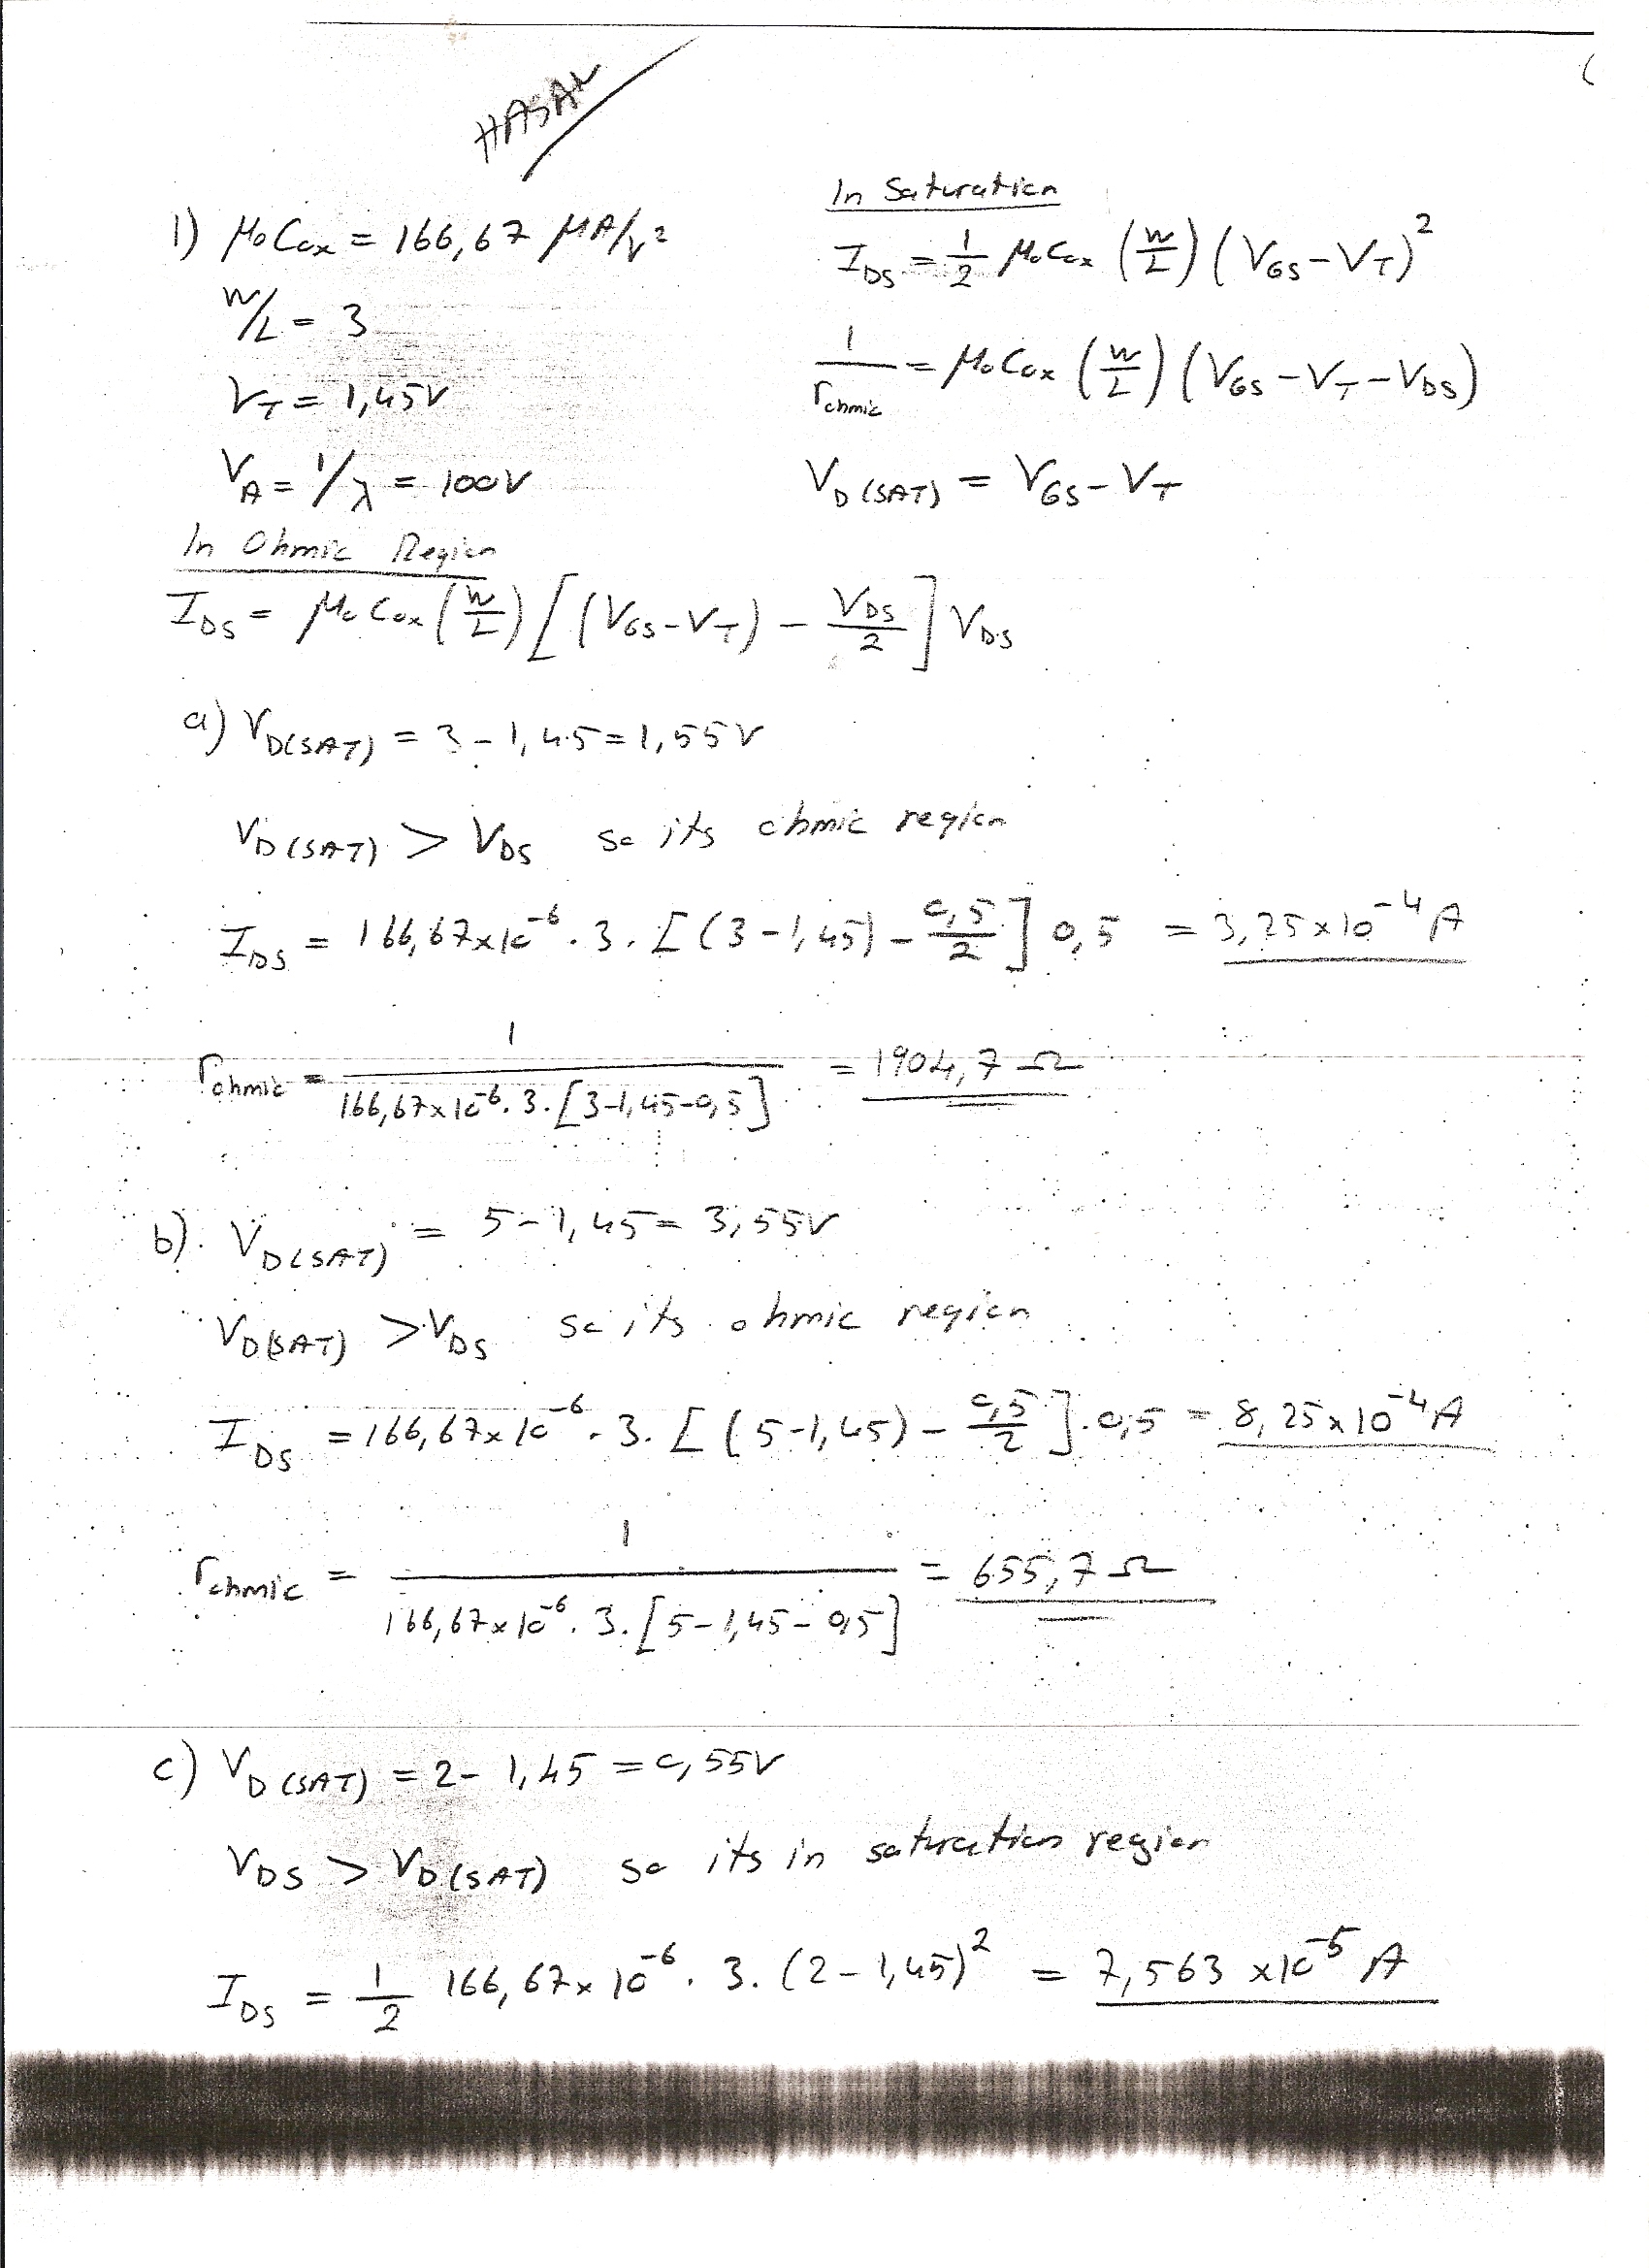 HASAN
1) μoCox = 166,67 μA/V²
W/L = 3
VT = 1,45V
VA = 1/λ = 100V
In Saturation
IDS = 1/2 μoCox (W/L) (VGS - VT)²
1/rohmic = μoCox (W/L) (VGS - VT - VDS)
VD(SAT) = VGS - VT
In Ohmic Region
IDS = μoCox (W/L) [(VGS - VT) - VDS/2] VDS
a) VD(SAT) = 3 - 1,45 = 1,55V
VD(SAT) > VDS so its ohmic region
IDS = 166,67x10^-6 . 3 . [(3 - 1,45) - 0,5/2] 0,5 = 3,25x10^-4 A
rohmic = 1 / 166,67x10^-6 . 3 . [3-1,45-0,5] = 1904,7 Ω
b) VD(SAT) = 5 - 1,45 = 3,55V
VD(SAT) > VDS so its ohmic region
IDS = 166,67x10^-6 . 3 . [(5-1,45) - 0,5/2] . 0,5 = 8,25x10^-4 A
rohmic = 1 / 166,67x10^-6 . 3 . [5-1,45-0,5] = 655,7 Ω
c) VD(SAT) = 2 - 1,45 = 0,55V
VDS > VD(SAT) so its in saturation region
IDS = 1/2 166,67x10^-6 . 3 . (2 - 1,45)² = 7,563 x10^-5 A